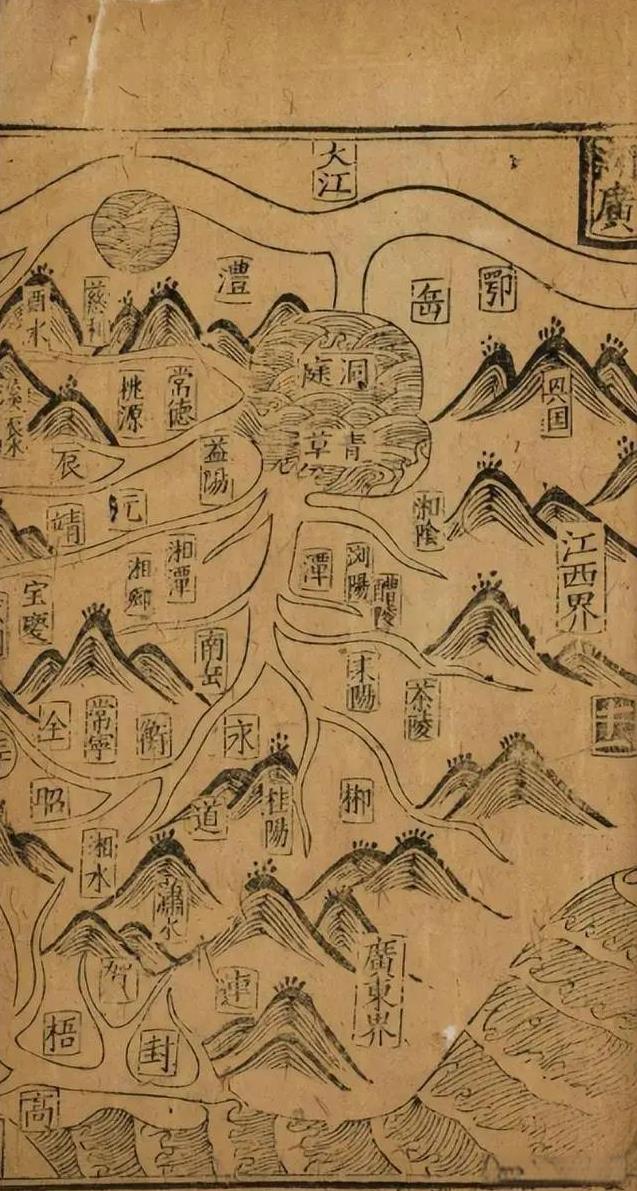 大江
廣
澧
岳
鄂
酉水
慈利
洞庭
青草
桃源
常德
益陽
辰
沅
靖
湘陰
江西界
潭
浏陽
醴陵
湘潭
湘鄉
宝慶
南岳
耒陽
茶陵
全
常寧
衡
永
昭
道
桂陽
郴
湘水
瀟水
賀
連
廣東界
梧
封
高